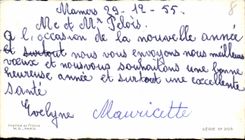 Mamers 29-12-55.
Mr et Mme Pelois.
A l'occasion de la nouvelle année
et surtout nous vous envoyons nous meilleurs
vœux et nous vous souhaitons une bonne
heureuse année et surtout une excellente
santé
Evelyne Mauricette